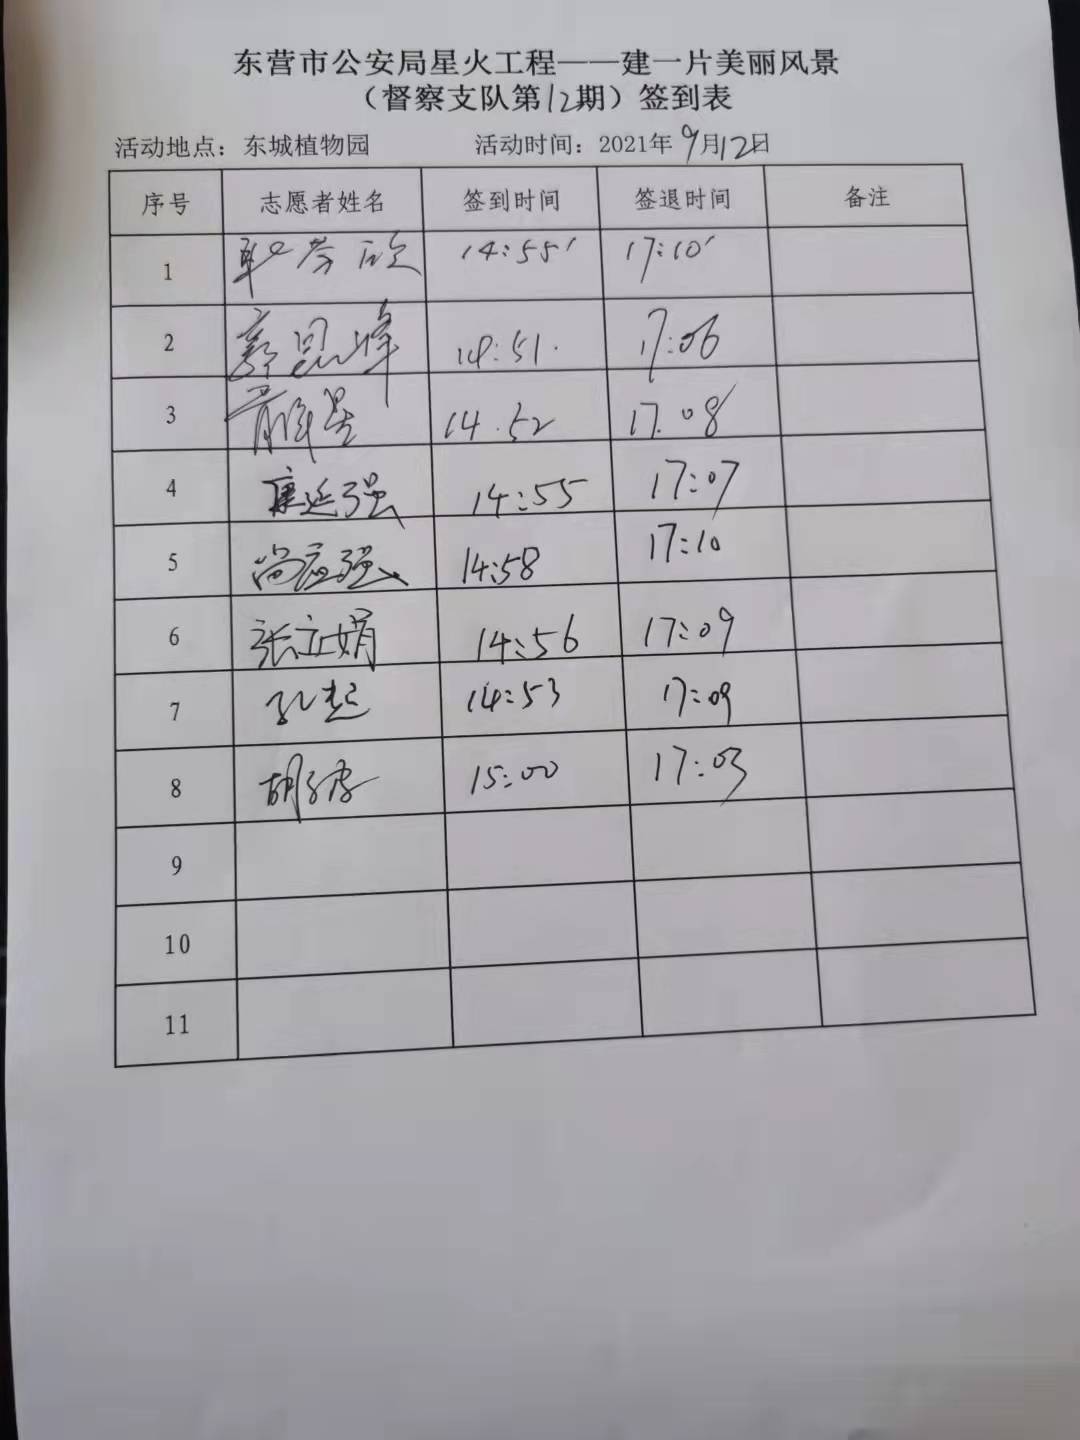 东营市公安局星火工程——建一片美丽风景
（督察支队第12期）签到表
活动地点：东城植物园 活动时间：2021年9月12日
序号 志愿者姓名 签到时间 签退时间 备注
1 14:55' 17:10'
2 郭昆峰 14:51. 17:06
3 14.52 17.08
4 康延强 14:55 17:07
5 尚应强 14:58 17:10
6 张立娟 14:56 17:09
7 孔超 14:53 17:09
8 胡 15:00 17:03
9
10
11